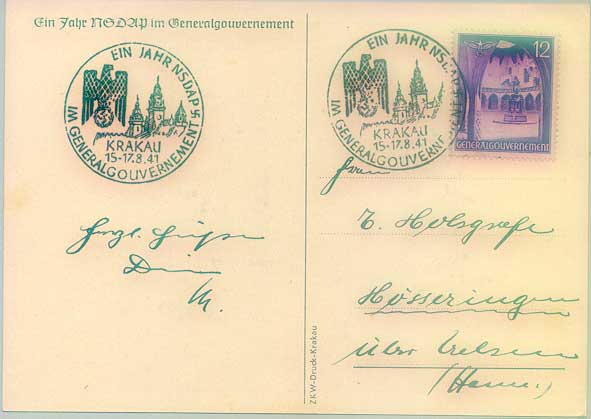 Ein Jahr NSDAP im Generalgouvernement
EIN JAHR NSDAP
IM GENERALGOUVERNEMENT
KRAKAU
15-17.8.41
EIN JAHR NSDAP
IM GENERALGOUVERNEMENT
KRAKAU
15-17.8.41
12
GENERALGOUVERNEMENT
Herzl. Grüße
Dein
Frau
T. Holsgrefe
Hösseringen
über Uelzen
(Hann.)
ZKW-Druck-Krakau